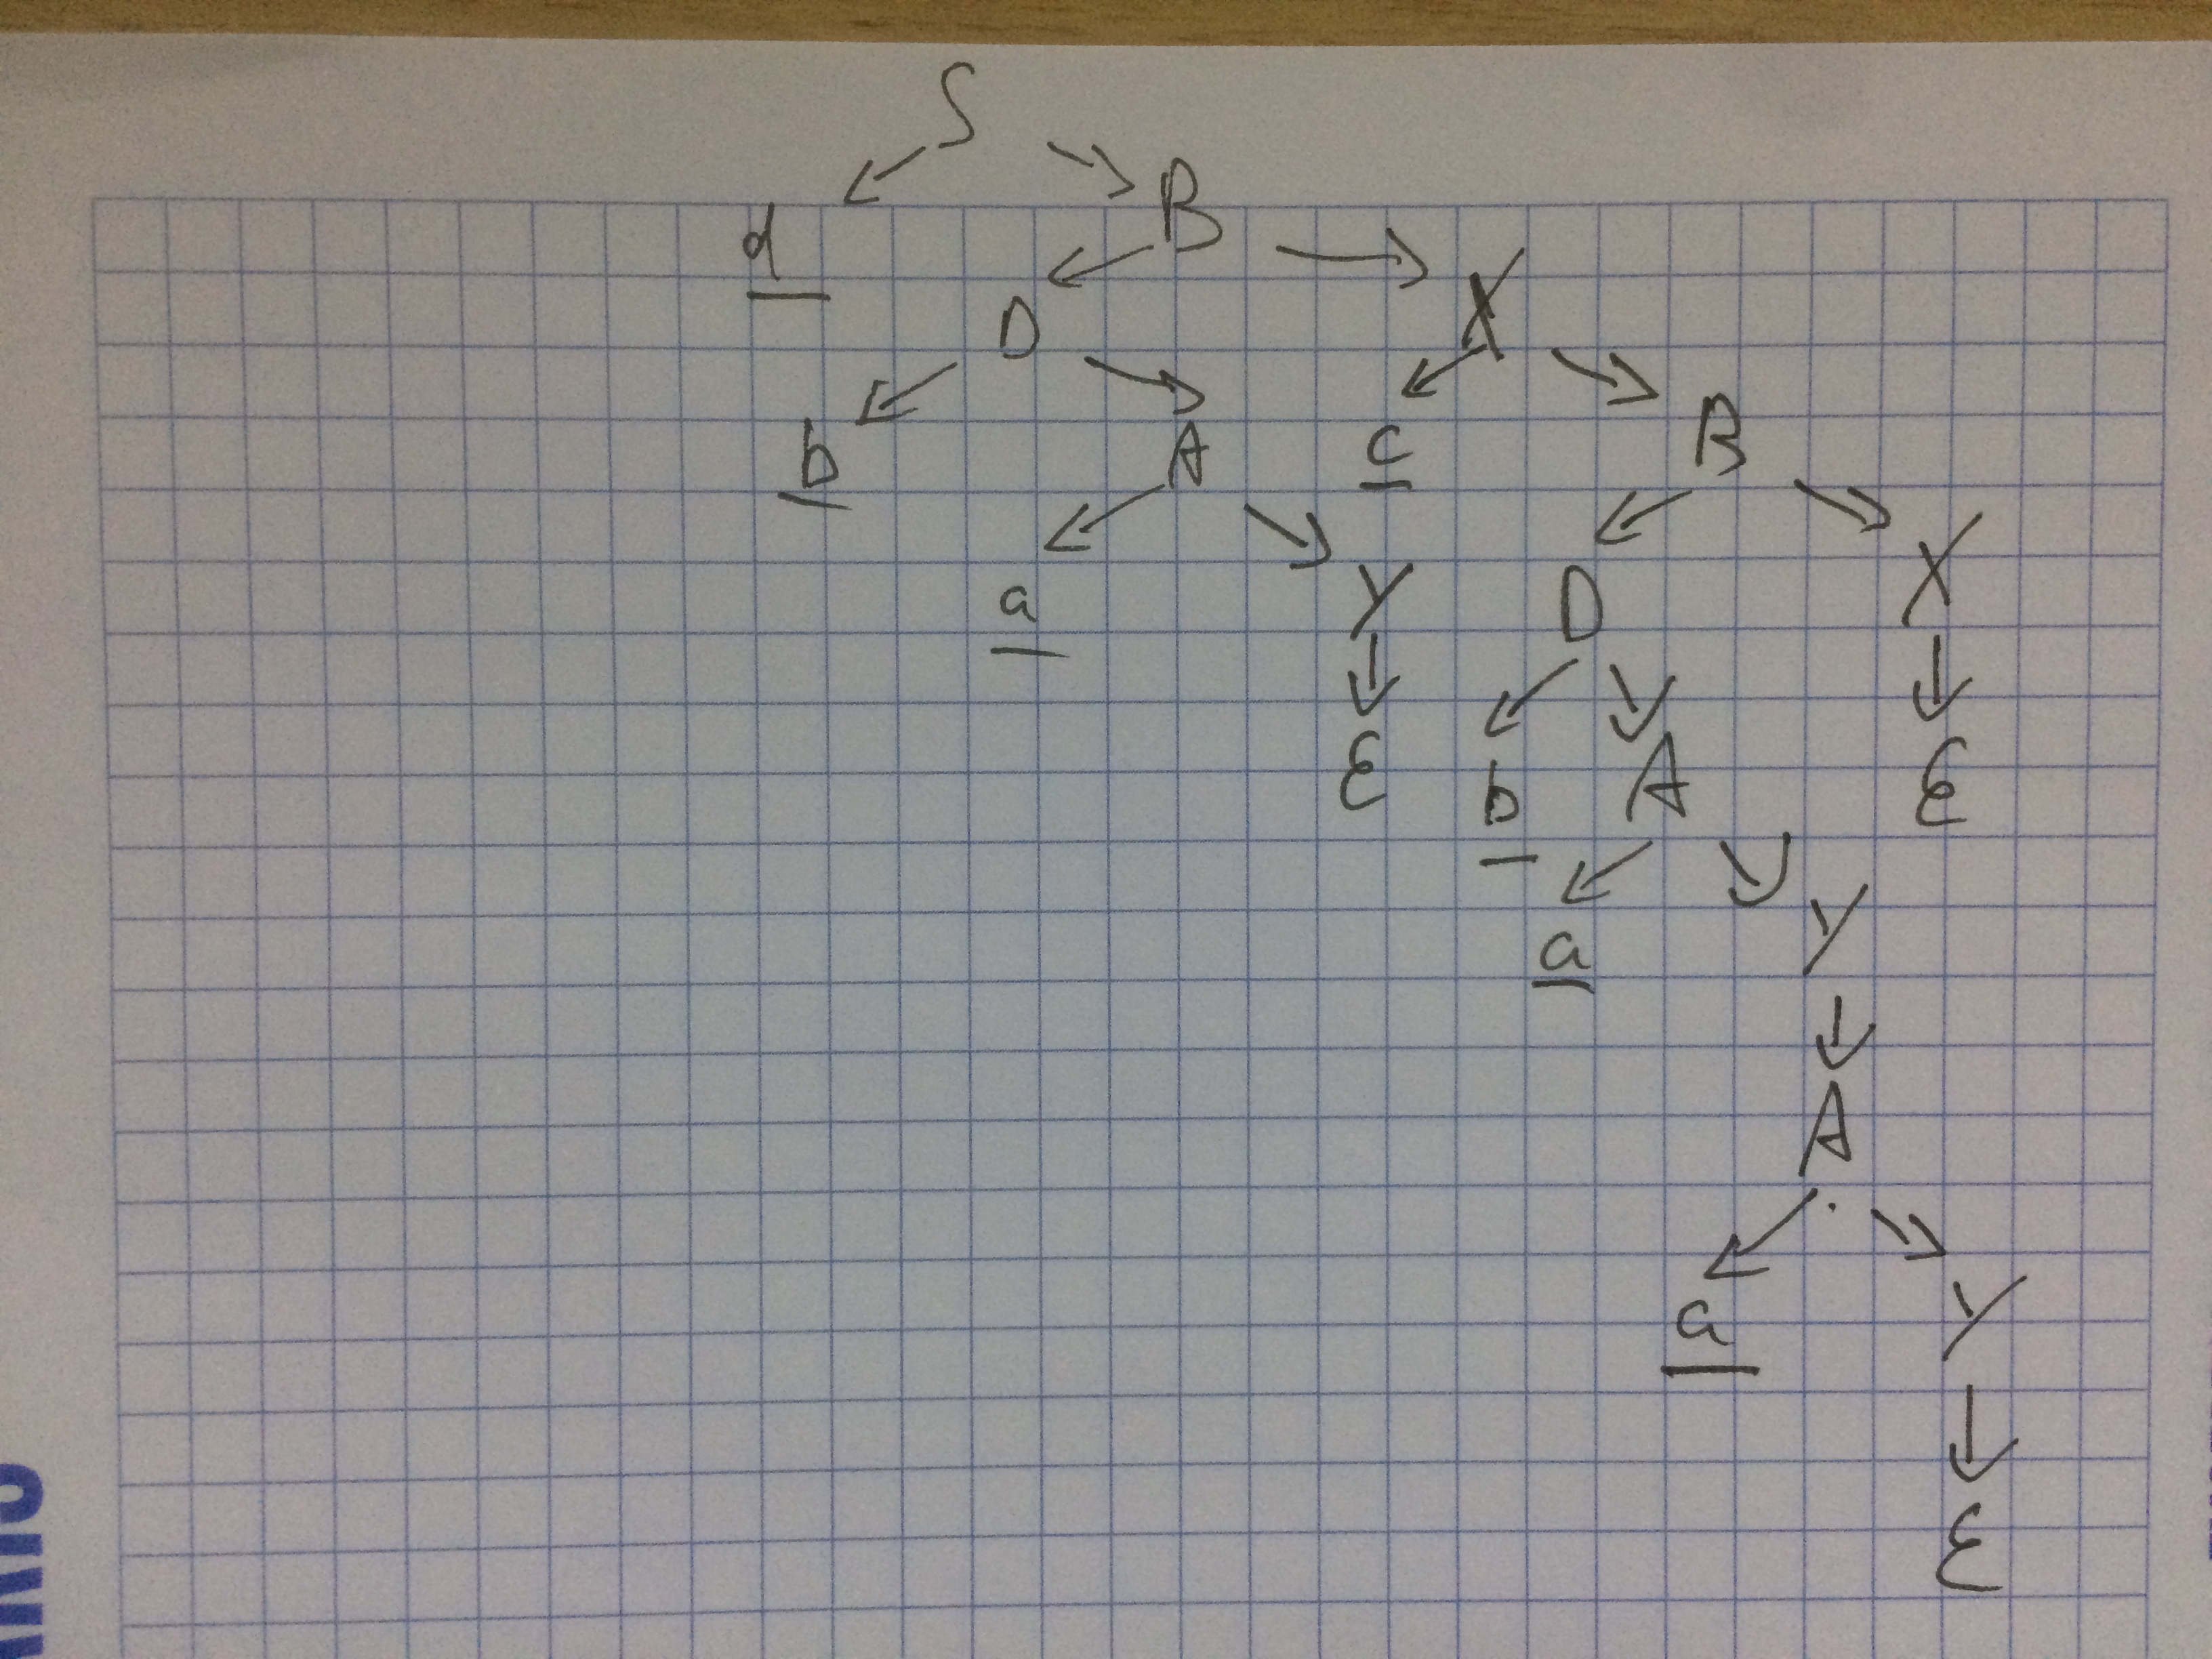 S
d B
D X
b A c B
a Y D X
ε b A ε
a Y
A
a Y
ε